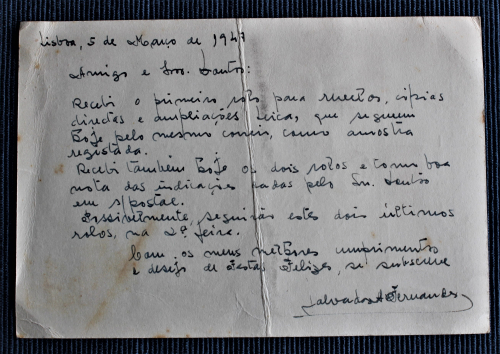 Lisboa, 5 de Março de 1947
Amigo e Snr. Santos:
Recebi o primeiro rolo para revelar, cópias
directas e ampliações Leica, que seguem
hoje pelo mesmo correio, como amostra
registada.
Recebi também hoje os dois rolos e tomo boa
nota das indicações dadas pelo Snr. Santos
em s/postal.
Possivelmente, seguirão estes dois últimos
rolos, na 2ª feira.
Com os meus melhores cumprimentos
e desejo de Festas Felizes, se subscreve
Salvador A Fernandes